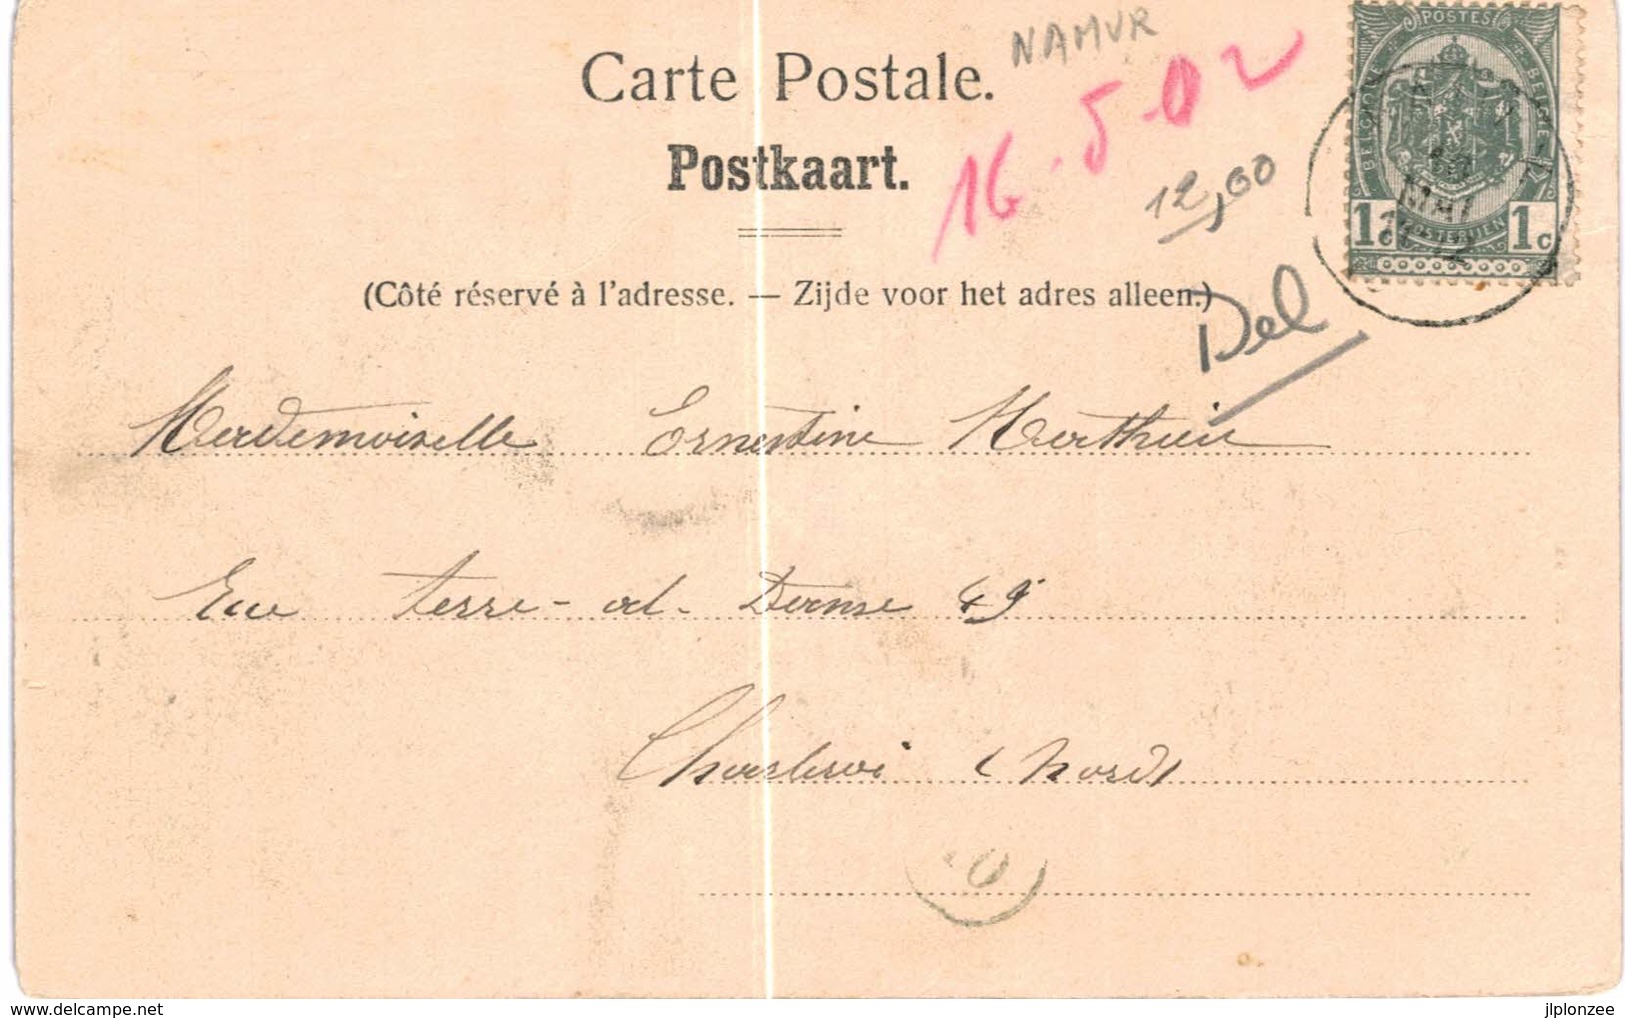 NAMUR
Carte Postale.
16.5 02
Postkaart.
12,00
(Côté réservé à l'adresse. — Zijde voor het adres alleen.)
Del
POSTES
BELGIQUE BELGIE
MAI
POSTERIJEN
1c 1c
Mademoiselle Ernestine Mathieu
Rue terre-al-Danse 49
Charleroi (nord)
www.delcampe.net
jlplonzee